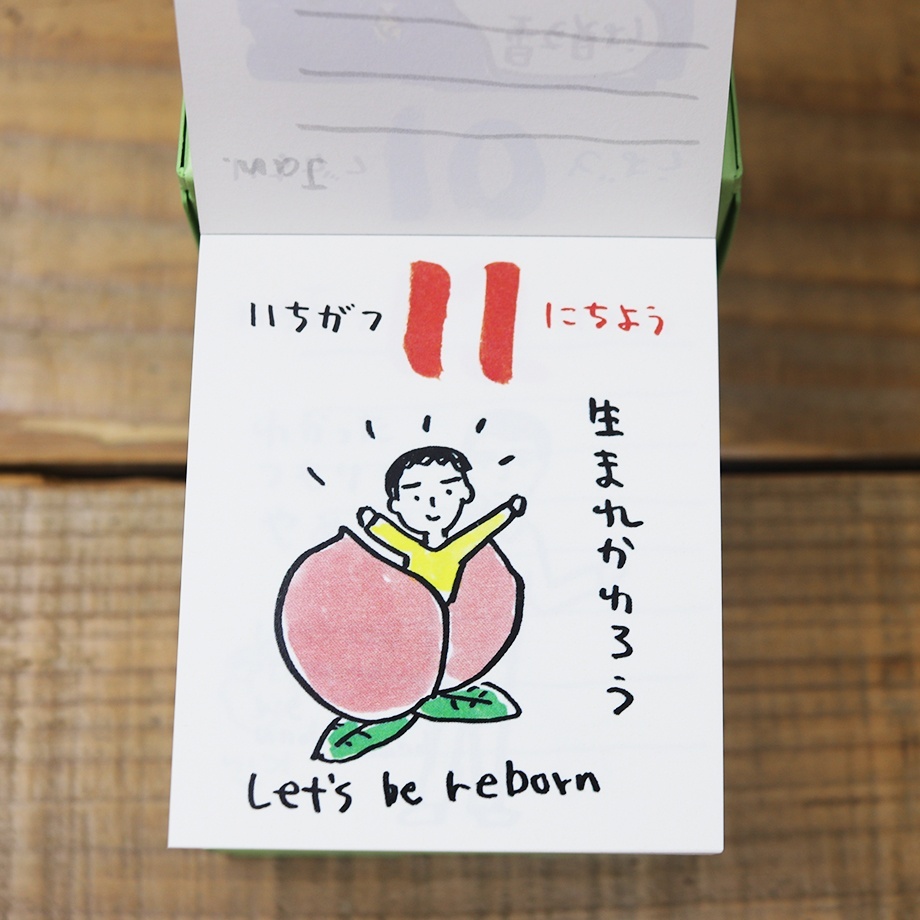 いちがつ 11 にちよう
生まれかわろう
Let's be reborn